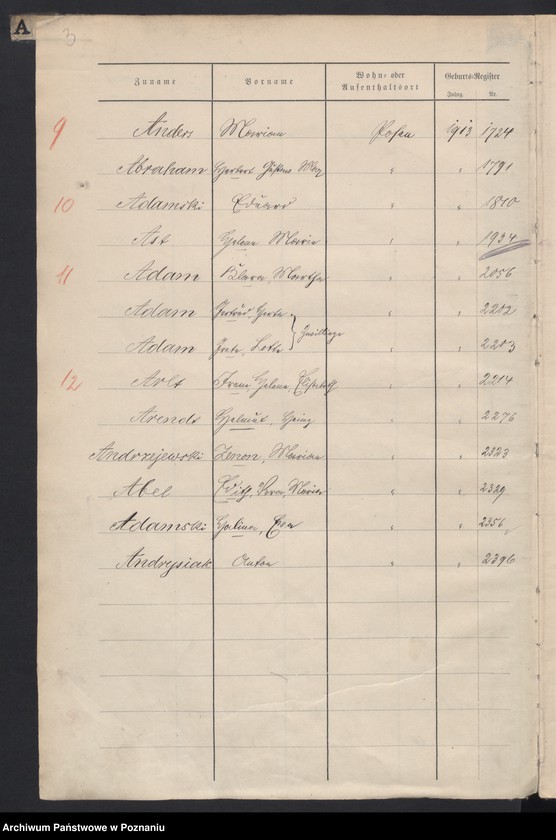 A
3
Zuname Vorname Wohn- oder Aufenthaltsort Geburts-Register
Jahrg. Nr.
9 Anders Marian Posen 1913 1724
Abraham Herbert Gustav Max " " 1791
10 Adamski Eduard " " 1810
Ast Helene Maria " " 1934
11 Adam Klara, Martha " " 2056
Adam Gertrud, Herta " " 2202
Zwillinge
Adam Grete, Lotte " " 2203
12 Arlt Franz " " 2214
Arendt Helmut, Heinz " " 2276
Andrzejewski Zenon, Marian " " 2323
Abel Edith, Marie " " 2329
Adamski Halina, Ewa " " 2356
Andrysiak Anton " " 2396
Archiwum Państwowe w Poznaniu